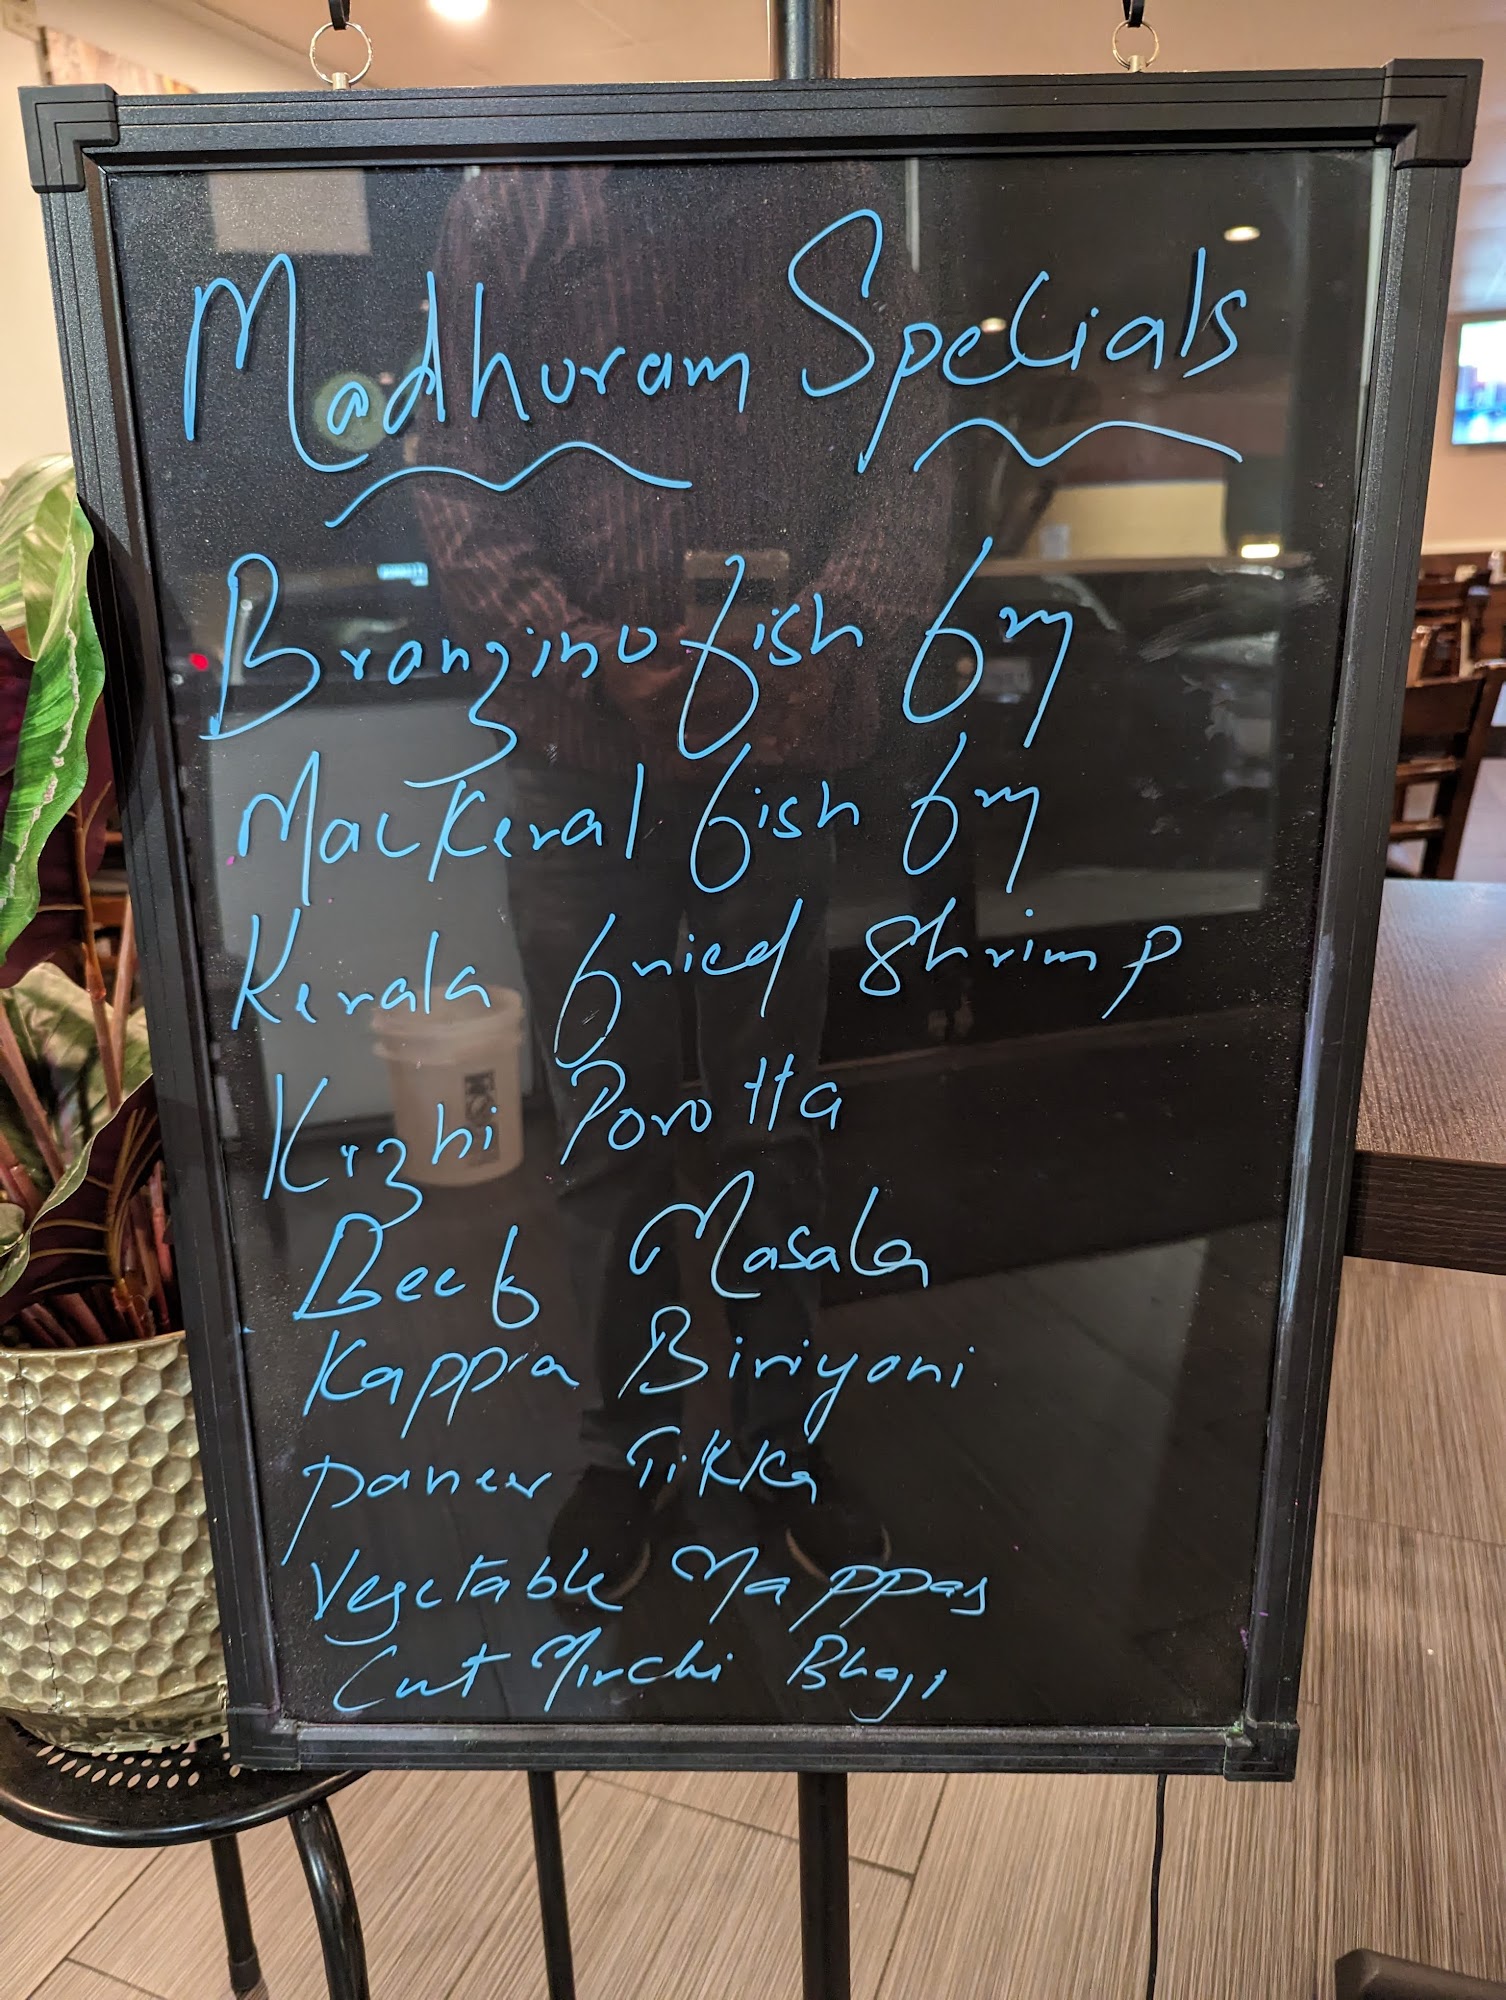 Madhuram Specials
Branzino fish fry
Mackeral fish fry
Kerala fried Shrimp
Kizhi Porotta
Beef Masala
Kappa Biriyani
Paneer Tikka
Vegetable Mappas
Cut Mirchi Bhaji